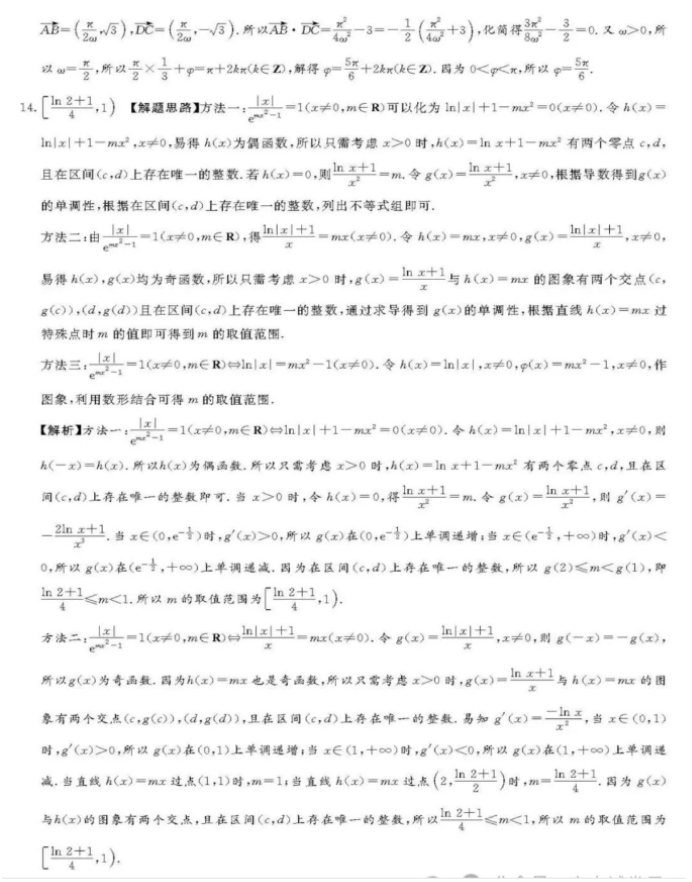 $\overrightarrow{AB}=\left(\frac{\pi}{2\omega},\sqrt{3}\right),\overrightarrow{DC}=\left(\frac{\pi}{2\omega},-\sqrt{3}\right)$.所以$\overrightarrow{AB}\cdot\overrightarrow{DC}=\frac{\pi^2}{4\omega^2}-3=-\frac{1}{2}\left(\frac{\pi^2}{4\omega^2}+3\right)$,化简得$\frac{3\pi^2}{8\omega^2}-\frac{3}{2}=0$.又 ω>0,所
以 $\omega=\frac{\pi}{2}$,所以$\frac{\pi}{2}\times\frac{1}{3}+\varphi=\pi+2k\pi(k\in\mathbf{Z})$,解得 $\varphi=\frac{5\pi}{6}+2k\pi(k\in\mathbf{Z})$.因为 0<φ<π,所以 $\varphi=\frac{5\pi}{6}$.
14.$\left[\frac{\ln 2+1}{4},1\right)$ 【解题思路】方法一:$\frac{|x|}{e^{mx^2-1}}=1(x\neq0,m\in\mathbf{R})$可以化为 ln|x|+1-mx²=0(x≠0).令 h(x)=
ln|x|+1-mx²,x≠0,易得 h(x)为偶函数,所以只需考虑 x>0 时,h(x)=ln x+1-mx² 有两个零点 c,d,
且在区间(c,d)上存在唯一的整数.若 h(x)=0,则$\frac{\ln x+1}{x^2}=m$.令 g(x)=$\frac{\ln x+1}{x^2}$,x≠0,根据导数得到g(x)
的单调性,根据在区间(c,d)上存在唯一的整数,列出不等式组即可.
方法二:由$\frac{|x|}{e^{mx^2-1}}=1(x\neq0,m\in\mathbf{R})$,得$\frac{\ln|x|+1}{x}=mx(x\neq0)$.令 h(x)=mx,x≠0,g(x)=$\frac{\ln|x|+1}{x}$,x≠0,
易得 h(x),g(x)均为奇函数,所以只需考虑 x>0 时,g(x)=$\frac{\ln x+1}{x}$与 h(x)=mx 的图象有两个交点(c,
g(c)),(d,g(d))且在区间(c,d)上存在唯一的整数,通过求导得到 g(x)的单调性,根据直线 h(x)=mx 过
特殊点时 m 的值即可得到 m 的取值范围.
方法三:$\frac{|x|}{e^{mx^2-1}}=1(x\neq0,m\in\mathbf{R})\Leftrightarrow$ln|x|=mx²-1(x≠0).令 h(x)=ln|x|,x≠0,φ(x)=mx²-1,x≠0,作
图象,利用数形结合可得 m 的取值范围.
【解析】方法一:$\frac{|x|}{e^{mx^2-1}}=1(x\neq0,m\in\mathbf{R})\Leftrightarrow$ln|x|+1-mx²=0(x≠0).令 h(x)=ln|x|+1-mx²,x≠0,则
h(-x)=h(x).所以h(x)为偶函数.所以只需考虑 x>0 时,h(x)=ln x+1-mx² 有两个零点 c,d,且在区
间(c,d)上存在唯一的整数即可.当 x>0 时,令 h(x)=0,得$\frac{\ln x+1}{x^2}=m$.令 g(x)=$\frac{\ln x+1}{x^2}$,则 g′(x)=
$-\frac{2\ln x+1}{x^3}$.当 x∈(0,$e^{-\frac{1}{2}}$)时,g′(x)>0,所以 g(x)在(0,$e^{-\frac{1}{2}}$)上单调递增;当 x∈($e^{-\frac{1}{2}}$,+∞)时,g′(x)<
0,所以 g(x)在($e^{-\frac{1}{2}}$,+∞)上单调递减.因为在区间(c,d)上存在唯一的整数,所以 g(2)≤m<g(1),即
$\frac{\ln 2+1}{4}$≤m<1.所以 m 的取值范围为$\left[\frac{\ln 2+1}{4},1\right)$.
方法二:$\frac{|x|}{e^{mx^2-1}}=1(x\neq0,m\in\mathbf{R})\Leftrightarrow\frac{\ln|x|+1}{x}=mx(x\neq0)$.令 g(x)=$\frac{\ln|x|+1}{x}$,x≠0,则 g(-x)=-g(x),
所以g(x)为奇函数.因为h(x)=mx 也是奇函数,所以只需考虑 x>0 时,g(x)=$\frac{\ln x+1}{x}$与 h(x)=mx 的图
象有两个交点(c,g(c)),(d,g(d)),且在区间(c,d)上存在唯一的整数.易知 g′(x)=$\frac{-\ln x}{x^2}$,当 x∈(0,1)
时,g′(x)>0,所以 g(x)在(0,1)上单调递增;当 x∈(1,+∞)时,g′(x)<0,所以 g(x)在(1,+∞)上单调递
减.当直线 h(x)=mx 过点(1,1)时,m=1;当直线 h(x)=mx 过点$\left(2,\frac{\ln 2+1}{2}\right)$时,m=$\frac{\ln 2+1}{4}$.因为 g(x)
与h(x)的图象有两个交点,且在区间(c,d)上存在唯一的整数,所以$\frac{\ln 2+1}{4}$≤m<1,所以 m 的取值范围为
$\left[\frac{\ln 2+1}{4},1\right)$.